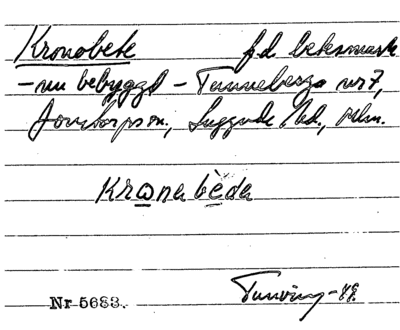 Kronobete f.d. betesmark
- nu bebyggd - Tunneberga nr 7,
Jonstorps sn., Luggude hd., Mlm.
Kronabèda
Nr 5683. Tunving -48.